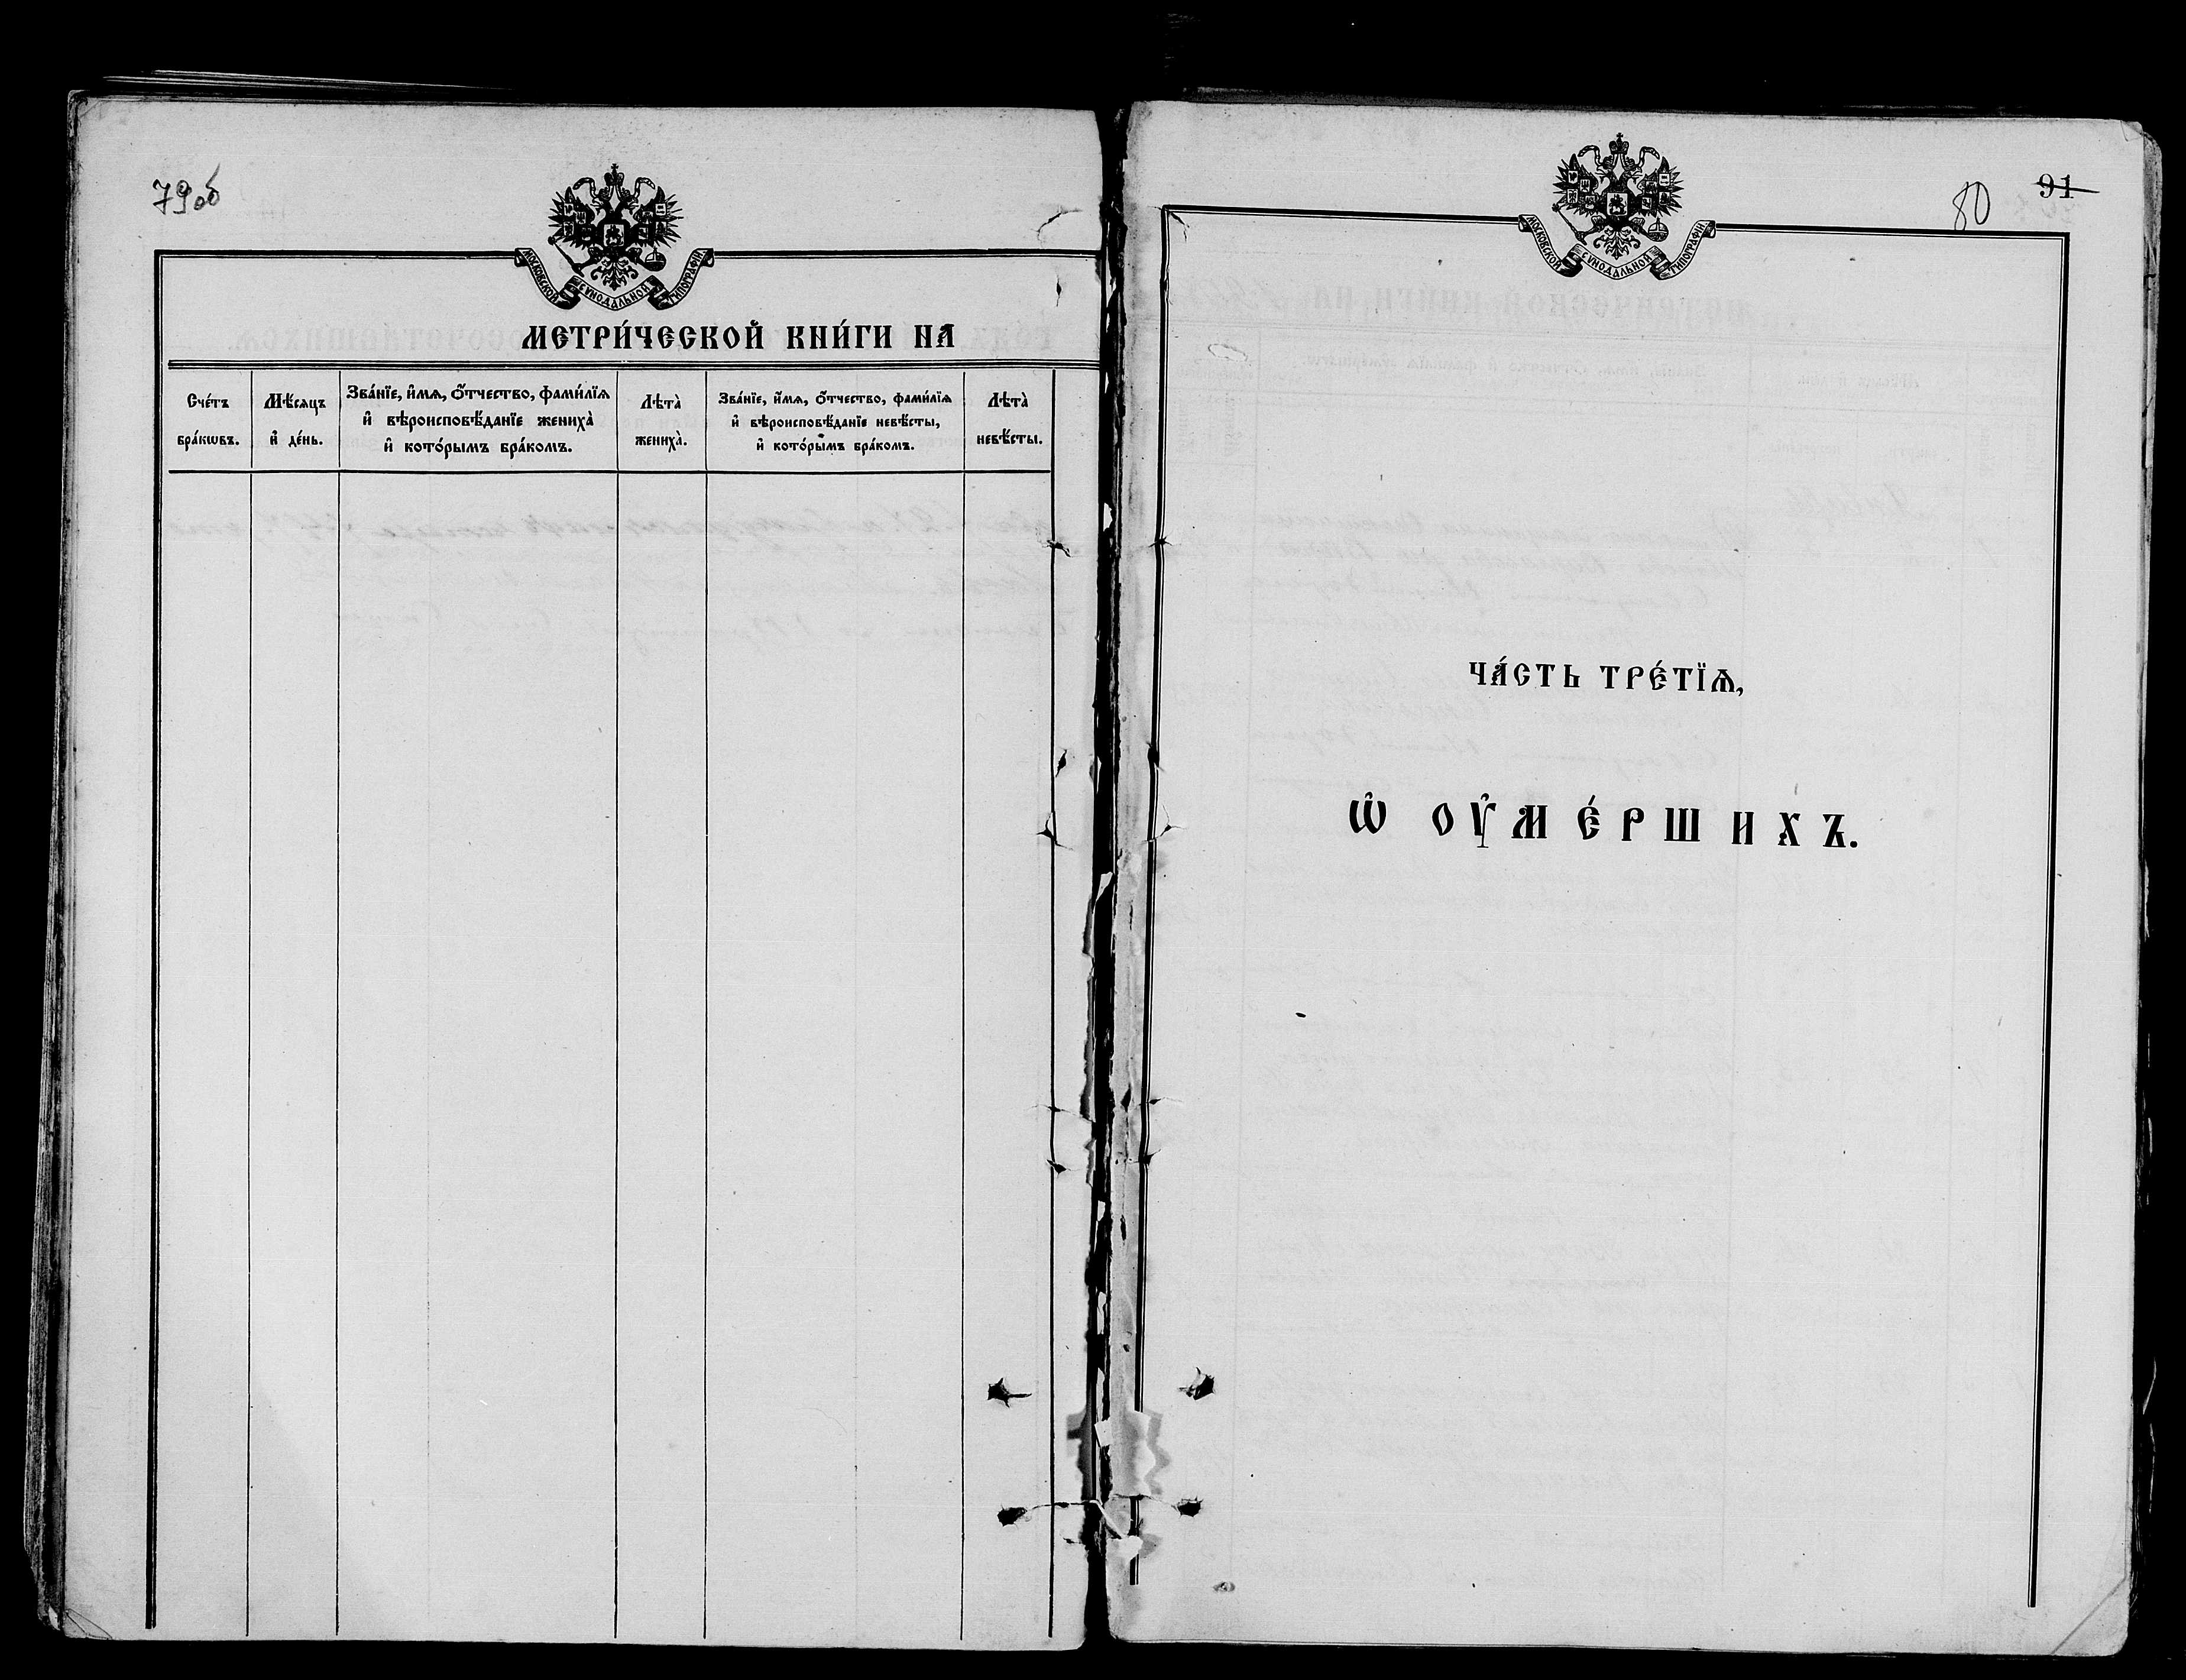 79об
МОСКОВСКОЙ СѴНОДАЛЬНОЙ ТИПОГРАФІИ
МЕТРИ́ЧЕСКОЙ КНИ́ГИ НА
Сче́тъ бра́кѡвъ.
Мѣ́сяцъ и҆ де́нь.
Зва́нїе, и҆́мѧ, ѻ҆́тчество, фами́лїѧ
и҆ вѣроисповѣ́данїе жениха̀
и҆ кото́рымъ бра́комъ.
Лѣта̀ жениха̀.
Зва́нїе, и҆́мѧ, ѻ҆́тчество, фами́лїѧ
и҆ вѣроисповѣ́данїе невѣ́сты,
и҆ кото́рымъ бра́комъ.
Лѣта̀ невѣ́сты.
80
91
МОСКОВСКОЙ СѴНОДАЛЬНОЙ ТИПОГРАФІИ
ЧА́СТЬ ТРЕ́ТЇѦ,
Ѡ҆ ОУ҆МЕ́РШИХЪ.